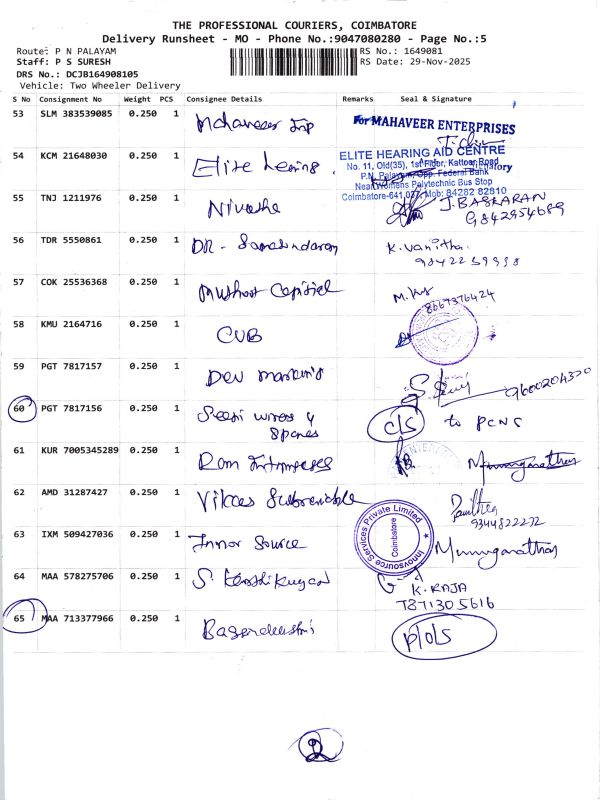 THE PROFESSIONAL COURIERS, COIMBATORE
Delivery Runsheet - MO - Phone No.:9047080280 - Page No.:5
Route: P N PALAYAM RS No.: 1649081
Staff: P S SURESH RS Date: 29-Nov-2025
DRS No.: DCJB164908105
Vehicle: Two Wheeler Delivery
S No Consignment No Weight PCS Consignee Details Remarks Seal & Signature
53 SLM 383539085 0.250 1 Mahaveer Inp For MAHAVEER ENTERPRISES
54 KCM 21648030 0.250 1 Elite Hearing ELITE HEARING AID CENTRE
No. 11, Old(35), 1st Floor, Kattoor Road
P.N. Palayam, Opp. Federal Bank
Near Womens Polytechnic Bus Stop
Coimbatore-641 037, Mob: 84282 82810
55 TNJ 1211976 0.250 1 Nivatha J. BASKARAN
9842954689
56 TDR 5550861 0.250 1 DR - K. Vanitha
9842259998
57 COK 25536368 0.250 1 Muthoot Capital
8667376424
58 KMU 2164716 0.250 1 CUB
59 PGT 7817157 0.250 1 Dev 9600204320
60 PGT 7817156 0.250 1 Seeni wires & c/s to PCNS
Spares
61 KUR 7005345289 0.250 1 Ram Enterprises Muruganathan
62 AMD 31287427 0.250 1 Vikaas
9344822272
63 IXM 509427036 0.250 1 Innov Source Innovsource Services Private Limited Coimbatore Muruganathan
64 MAA 578275706 0.250 1 S. K. RAJA
7871305616
65 MAA 713377966 0.250 1 P/O/S
2